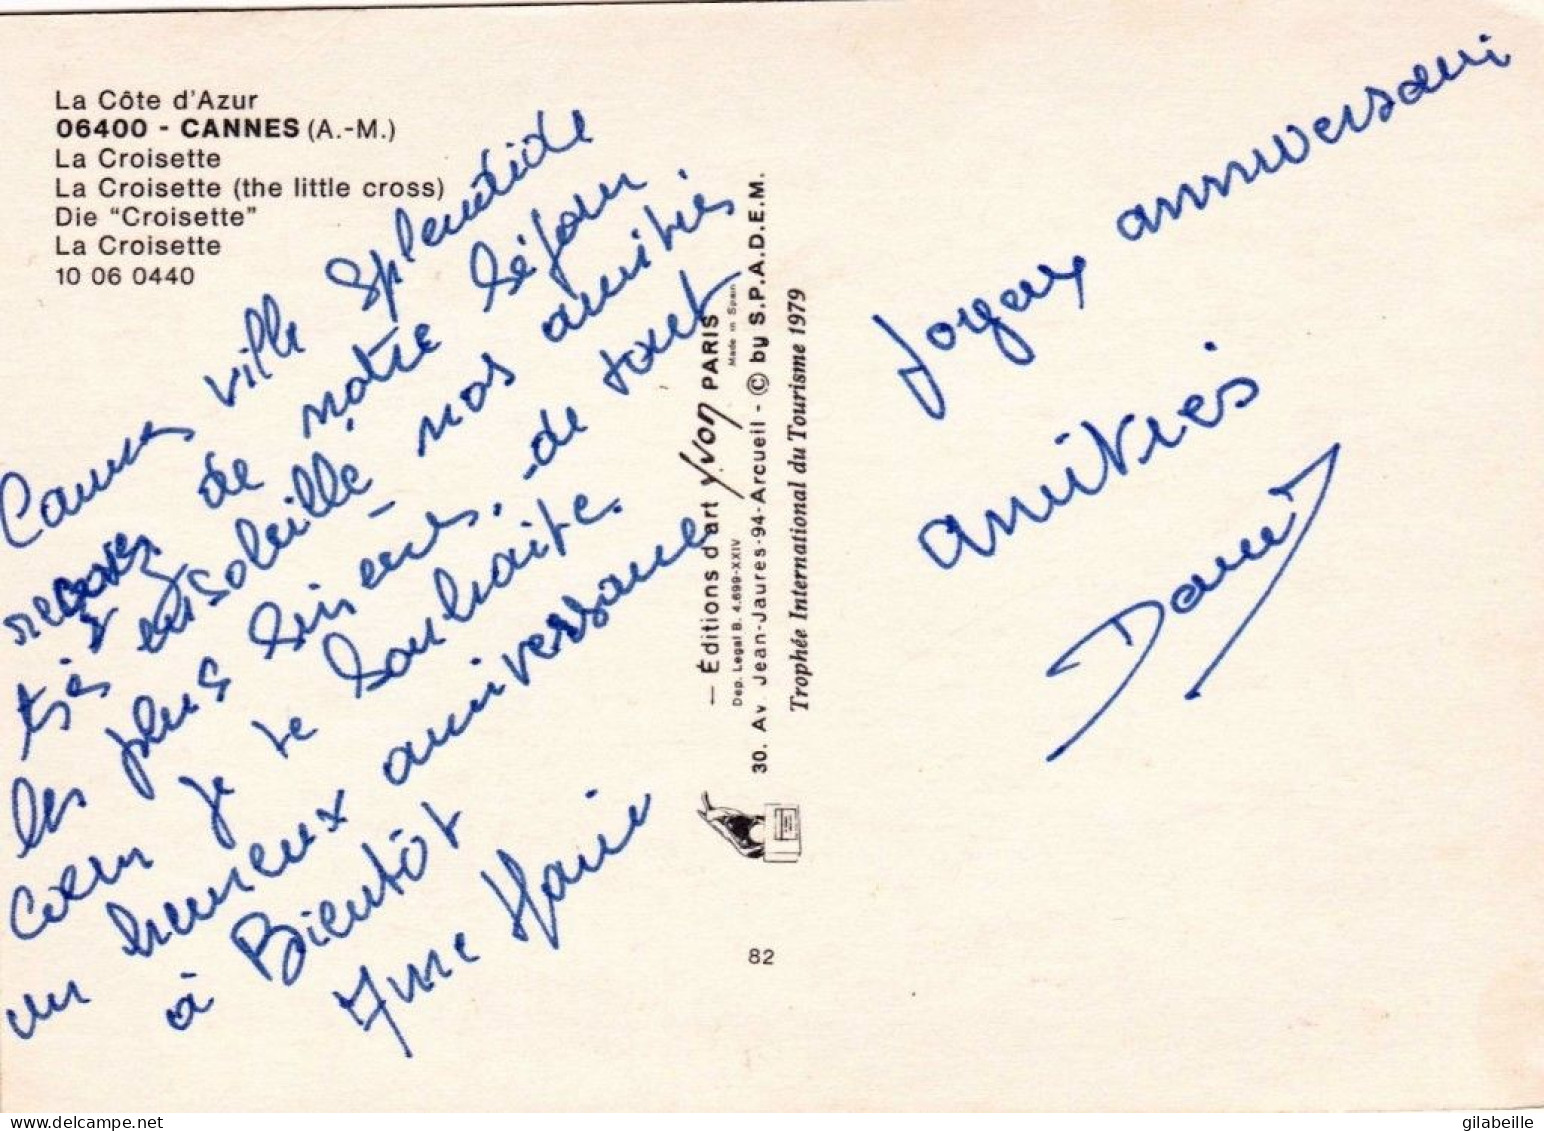 La Côte d'Azur
06400 - CANNES (A.-M.)
La Croisette
La Croisette (the little cross)
Die "Croisette"
La Croisette
10 06 0440
Cannes ville splendide
recevez de notre séjour
très ensoleillé nos amitiés
les plus sincères, - de tout
cœur je te souhaite.
un heureux anniversaire
à Bientôt
Marie
— Éditions d'art Yvon PARIS
Made in Spain
Dep. Legal B. 4.699-XXIV
30. Av. Jean-Jaures-94-Arcueil - © by S.P.A.D.E.M.
Trophée International du Tourisme 1979
82
Joyeux anniversaire
amitiés
gilabeille